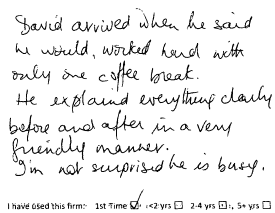 David arrived when he said
he would, worked hard with
only one coffee break.
He explained everything clearly
before and after in a very
friendly manner.
I'm not surprised he is busy.
I have used this firm: 1st Time ☑ <2 yrs ☐ 2-4 yrs ☐ 5+ yrs ☐